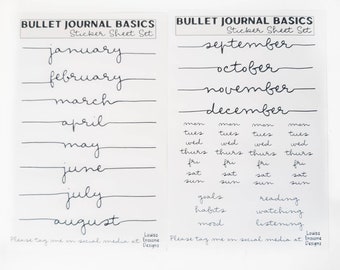 BULLET JOURNAL BASICS
Sticker Sheet Set
january
february
march
april
may
june
july
august
Please tag me on social media at
Louise
Erasure
Designs
BULLET JOURNAL BASICS
Sticker Sheet Set
september
october
november
december
mon mon mon mon
tues tues tues tues
wed wed wed wed
thurs thurs thurs thurs
fri fri fri fri
sat sat sat sat
sun sun sun sun
goals reading
habits watching
mood listening
Please tag me on social media at
Designs